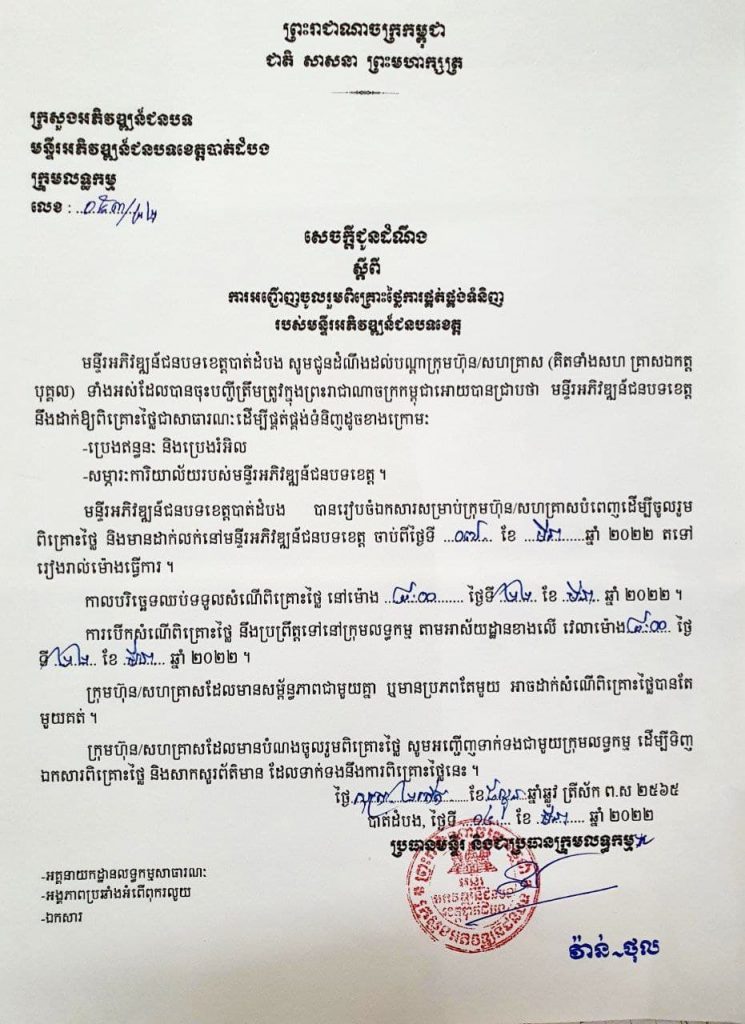 ព្រះរាជាណាចក្រកម្ពុជា
ជាតិ សាសនា ព្រះមហាក្សត្រ
ក្រសួងអភិវឌ្ឍន៍ជនបទ
មន្ទីរអភិវឌ្ឍន៍ជនបទខេត្តបាត់ដំបង
ក្រុមលទ្ធកម្ម
លេខ :
សេចក្តីជូនដំណឹង
ស្តីពី
ការអញ្ជើញចូលរួមពិគ្រោះថ្លៃការផ្គត់ផ្គង់ទំនិញ
របស់មន្ទីរអភិវឌ្ឍន៍ជនបទខេត្ត
មន្ទីរអភិវឌ្ឍន៍ជនបទខេត្តបាត់ដំបង សូមជូនដំណឹងដល់បណ្តាក្រុមហ៊ុន/សហគ្រាស (គិតទាំងសហ គ្រាសឯកត្ត
បុគ្គល) ទាំងអស់ដែលបានចុះបញ្ជីត្រឹមត្រូវក្នុងព្រះរាជាណាចក្រកម្ពុជាអោយបានជ្រាបថា មន្ទីរអភិវឌ្ឍន៍ជនបទខេត្ត
នឹងដាក់ឱ្យពិគ្រោះថ្លៃជាសាធារណៈដើម្បីផ្គត់ផ្គង់ទំនិញដូចខាងក្រោមៈ
-ប្រេងឥន្ធនៈ និងប្រេងរំអិល
-សម្ភារៈការិយាល័យរបស់មន្ទីរអភិវឌ្ឍន៍ជនបទខេត្ត ។
មន្ទីរអភិវឌ្ឍន៍ជនបទខេត្តបាត់ដំបង បានរៀបចំឯកសារសម្រាប់ក្រុមហ៊ុន/សហគ្រាសបំពេញដើម្បីចូលរួម
ពិគ្រោះថ្លៃ និងមានដាក់លក់នៅមន្ទីរអភិវឌ្ឍន៍ជនបទខេត្ត ចាប់ពីថ្ងៃទី ០៧ ខែ មីនា ឆ្នាំ ២០២២ តទៅ
រៀងរាល់ម៉ោងធ្វើការ ។
កាលបរិច្ឆេទឈប់ទទួលសំណើពិគ្រោះថ្លៃ នៅម៉ោង ៨:០០ ថ្ងៃទី ២២ ខែ មីនា ឆ្នាំ ២០២២ ។
ការបើកសំណើពិគ្រោះថ្លៃ នឹងប្រព្រឹត្តទៅនៅក្រុមលទ្ធកម្ម តាមអាស័យដ្ឋានខាងលើ វេលាម៉ោង ៨:០០ ថ្ងៃ
ទី ២២ ខែ មីនា ឆ្នាំ ២០២២ ។
ក្រុមហ៊ុន/សហគ្រាសដែលមានសម្ព័ន្ធភាពជាមួយគ្នា ឬមានប្រភពតែមួយ អាចដាក់សំណើពិគ្រោះថ្លៃបានតែ
មួយគត់ ។
ក្រុមហ៊ុន/សហគ្រាសដែលមានបំណងចូលរួមពិគ្រោះថ្លៃ សូមអញ្ជើញទាក់ទងជាមួយក្រុមលទ្ធកម្ម ដើម្បីទិញ
ឯកសារពិគ្រោះថ្លៃ និងសាកសួរព័ត៌មាន ដែលទាក់ទងនឹងការពិគ្រោះថ្លៃនេះ ។
ថ្ងៃ ខែ ផល្គុន ឆ្នាំឆ្លូវ ត្រីស័ក ព.ស ២៥៦៥
បាត់ដំបង, ថ្ងៃទី ០៤ ខែ មីនា ឆ្នាំ ២០២២
ប្រធានមន្ទីរ និងជាប្រធានក្រុមលទ្ធកម្ម
-អគ្គនាយកដ្ឋានលទ្ធកម្មសាធារណៈ
-អង្គភាពប្រឆាំងអំពើពុករលួយ
-ឯកសារ
វ៉ាន់ ~ ថុល